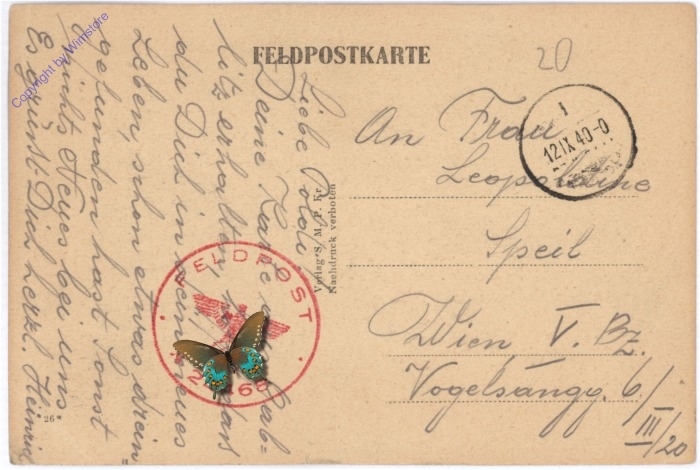 Copyright by Winstore
FELDPOSTKARTE
20
1
12 IX 40-0
An Frau
Leopoldine
Speil
Wien V. Bz.
Vogelsangg. 6/
III/20
Verlag S. M. P. Kr.
Nachdruck verboten
FELDPOST
26*
Liebe Poldi!
Deine Karte
erhalten, daß
du Dich in dein neues
Leben, schon etwas drein-
gefunden hast. Sonst
nichts Neues bei uns
Es grüsst Dich herzl. Heinrich